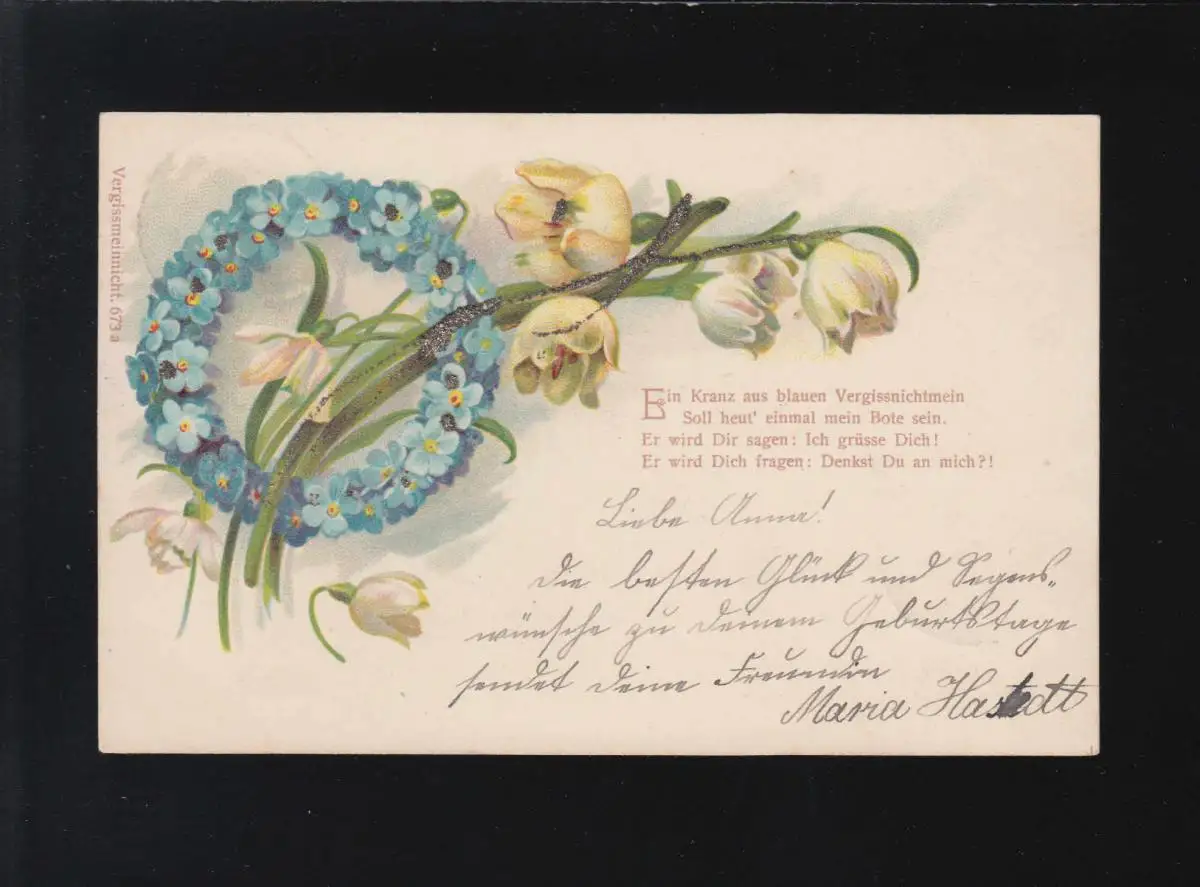 Vergissmeinnicht. 673 a
Ein Kranz aus blauen Vergissnichtmein
Soll heut' einmal mein Bote sein.
Er wird Dir sagen: Ich grüsse Dich!
Er wird Dich fragen: Denkst Du an mich?!
Liebe Anna!
Die besten Glück und Segens-
wünsche zu deinem Geburtstage
sendet deine Freundin
Maria Hastedt